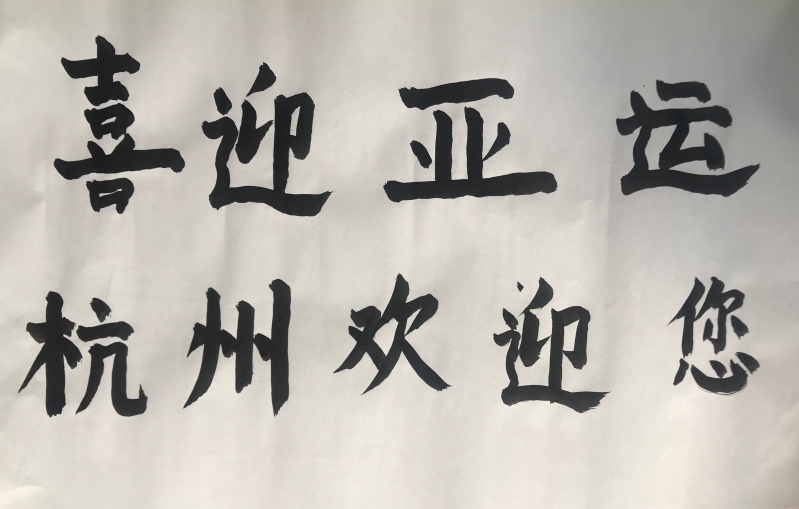 喜迎亚运
杭州欢迎您